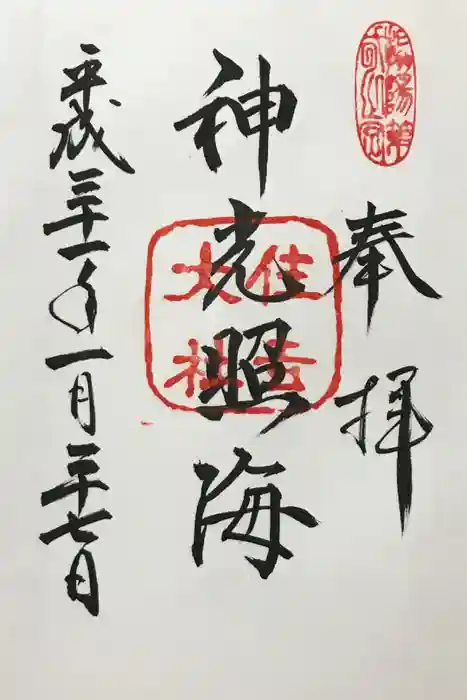 奉拝
神光照海
住吉
大神
平成三十一年一月二十七日